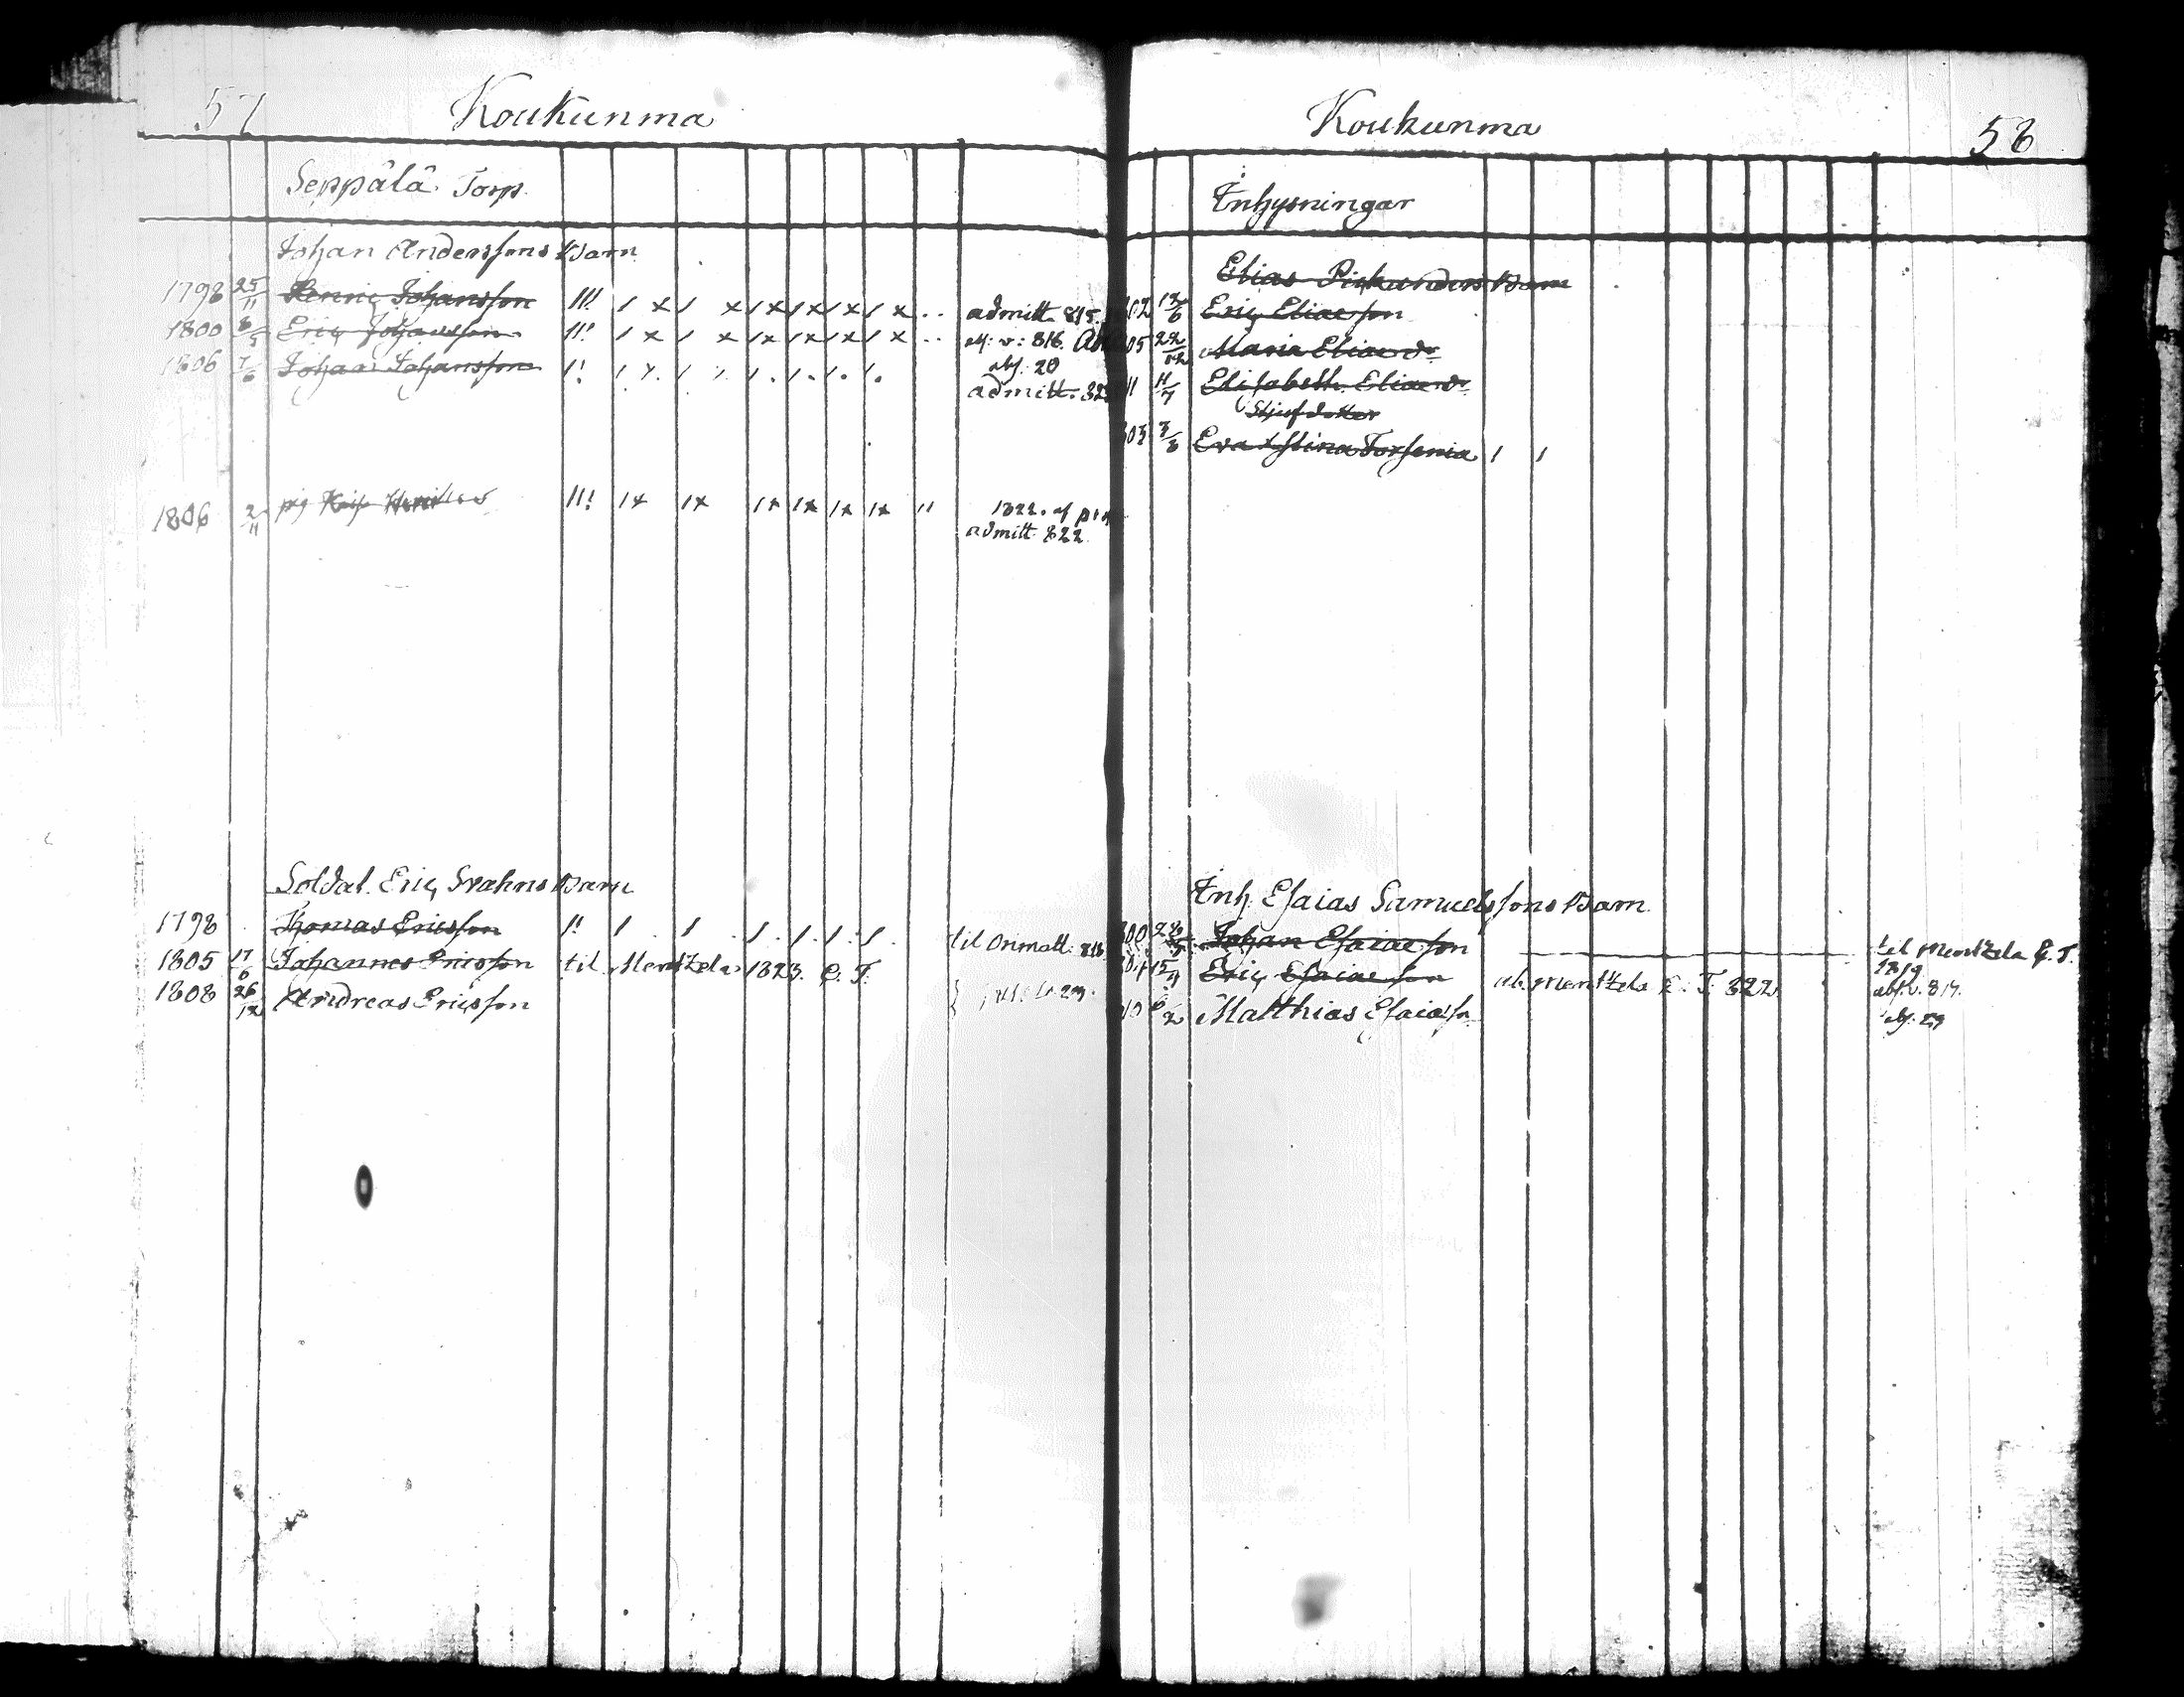 57 Koukunma
Seppälä Torp.
Johan Anderssons Barn
1798 25/11 Henric Johansson 111! 1 x 1 x 1x 1x 1x 1 x .. admitt. 815.
1800 Eric Johansson 11! 1 x 1 x 1x 1x 1x 1 x .. afs: v: 816.
1806 7/6 Johan Johansson 1! 1 x. 1 x. 1. 1. 1. 1. abs. 20
admitt. 82
1806 2/11 pig 111! 1x 1x 1x 1x 1x 1x 11 1822. af
admitt 822
Soldat. Eric Svahns Barn
1798 Thomas Ericsson 1! 1 . 1 . 1. 1. 1. 1. til Orimatt. 818
1805 17/6 Johannes Ericsson til Mentzela 1823. C. T.
1808 26/12 Andreas Ericsson
Koukunma 58
Inhysningar
Elias Barn
802 Eric Eliaesson
05 22/12 Maria Eliaedr
11 11/7 Elisabeth Eliaedr
Stjufdotter
803 Eva Stina Forsenia 1 1
Inh. Esaias Samuelssons Barn
800 Johan Esaiaeson til Mentzela C. T.
1819
15/4 Eric Esaiaeson ab. Mentzela C. T. 822. abs. v. 819.
10 6/2 Matthias Esaiaeso abs. 29